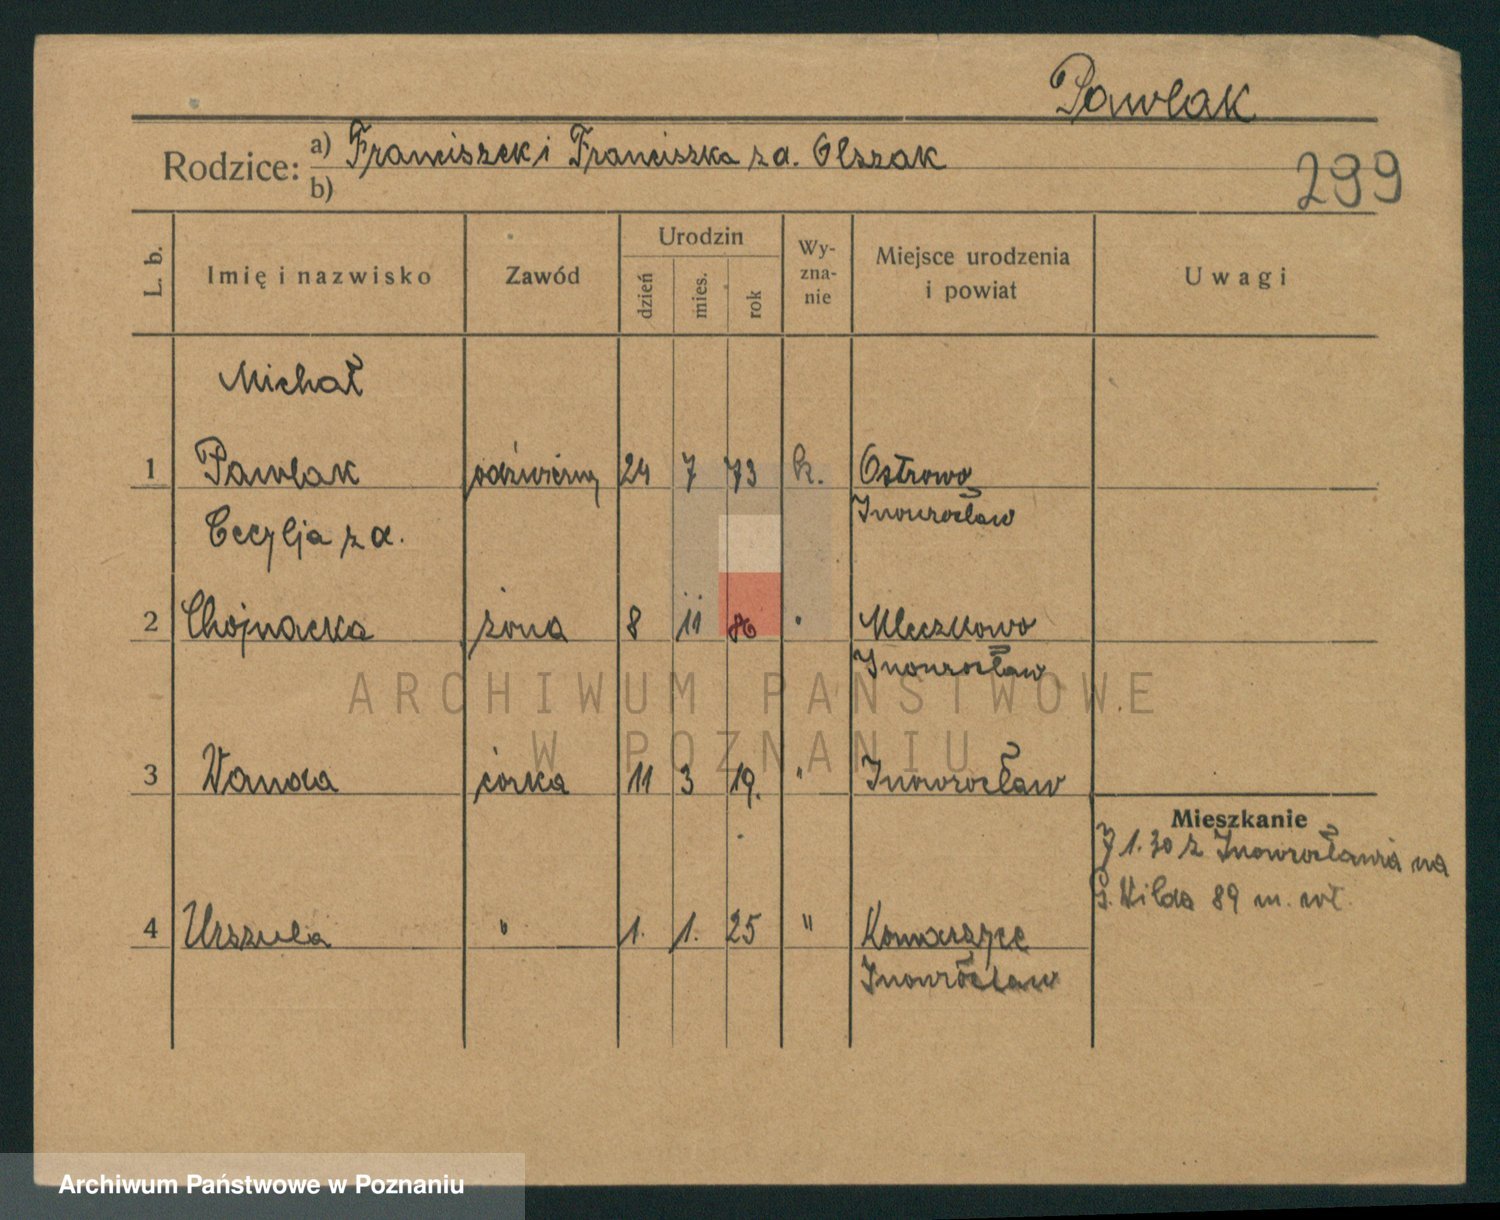 Pawlak
Rodzice: a) Franciszek i Franciszka z d. Olszak
b)
299
L. b. Imię i nazwisko Zawód Urodzin dzień mies. rok Wy-zna-nie Miejsce urodzenia i powiat Uwagi
Michał
1 Pawlak odźwierny 24 7 73 k. Ostrowo
Inowrocław
Cecylja z d.
2 Chojnacka żona 8 11 86 " Kleczkowo
Inowrocław
3 Wanda córka 11 3 19. " Inowrocław
Mieszkanie
7 1.30 z Inowrocławia na
G. Wilda 89 m. wł.
4 Urszula " 1. 1. 25 " Komaszyce
Inowrocław
ARCHIWUM PAŃSTWOWE
W POZNANIU
Archiwum Państwowe w Poznaniu